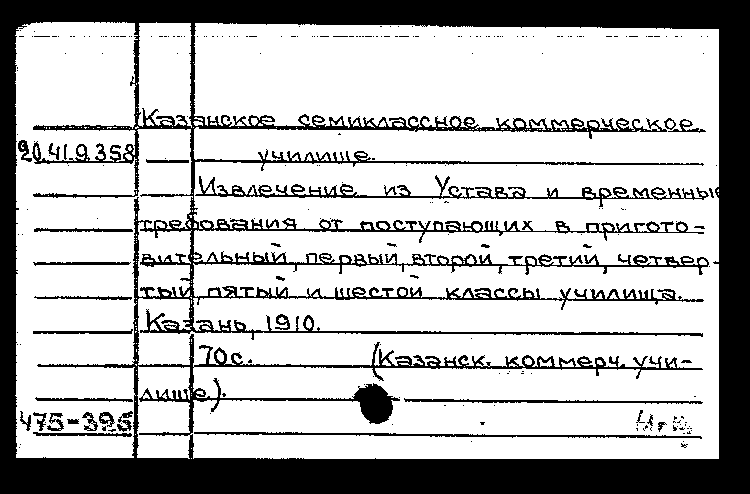 Казанское семиклассное коммерческое
20.41.9.358 училище.
Извлечение из Устава и временные
требования от поступающих в пригото-
вительный, первый, второй, третий, четвер-
тый, пятый и шестой классы училища.
Казань, 1910.
70с. (Казанск. коммерч. учи-
лище).
475-396